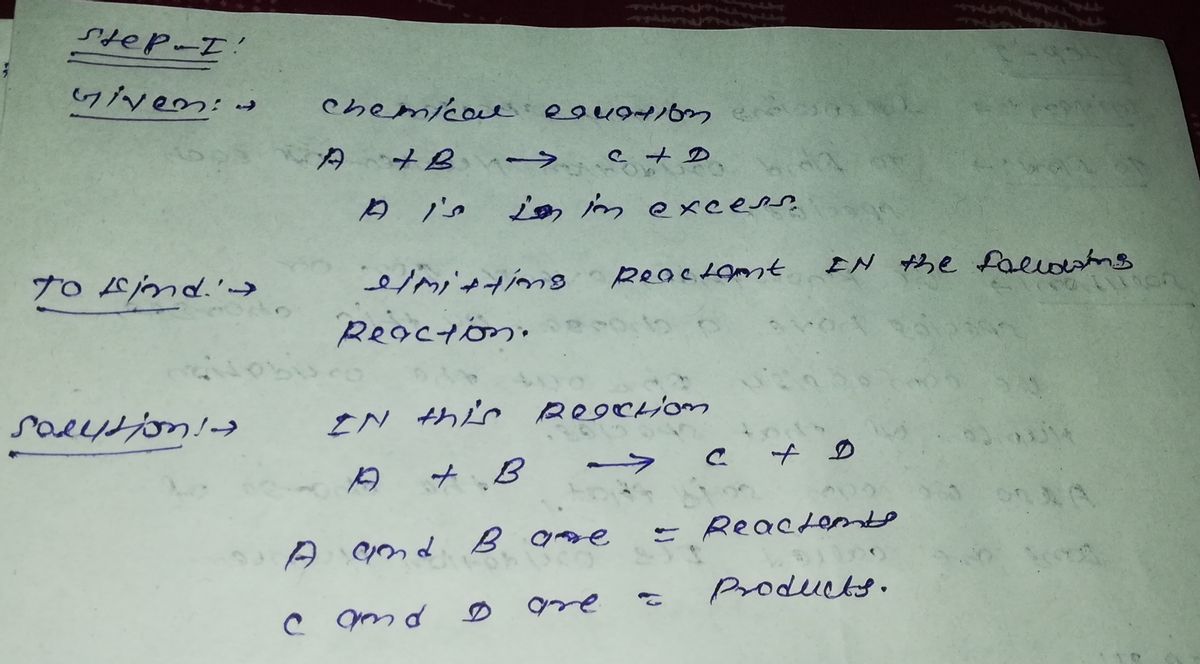 Step-I:
Given: → chemical equation
A + B → C + D
A is in in excess.
To find: → limitting Reactant IN the following
Reaction.
Solution: → IN this Reaction
A + B → C + D
A and B are = Reactants
C and D are = Products.